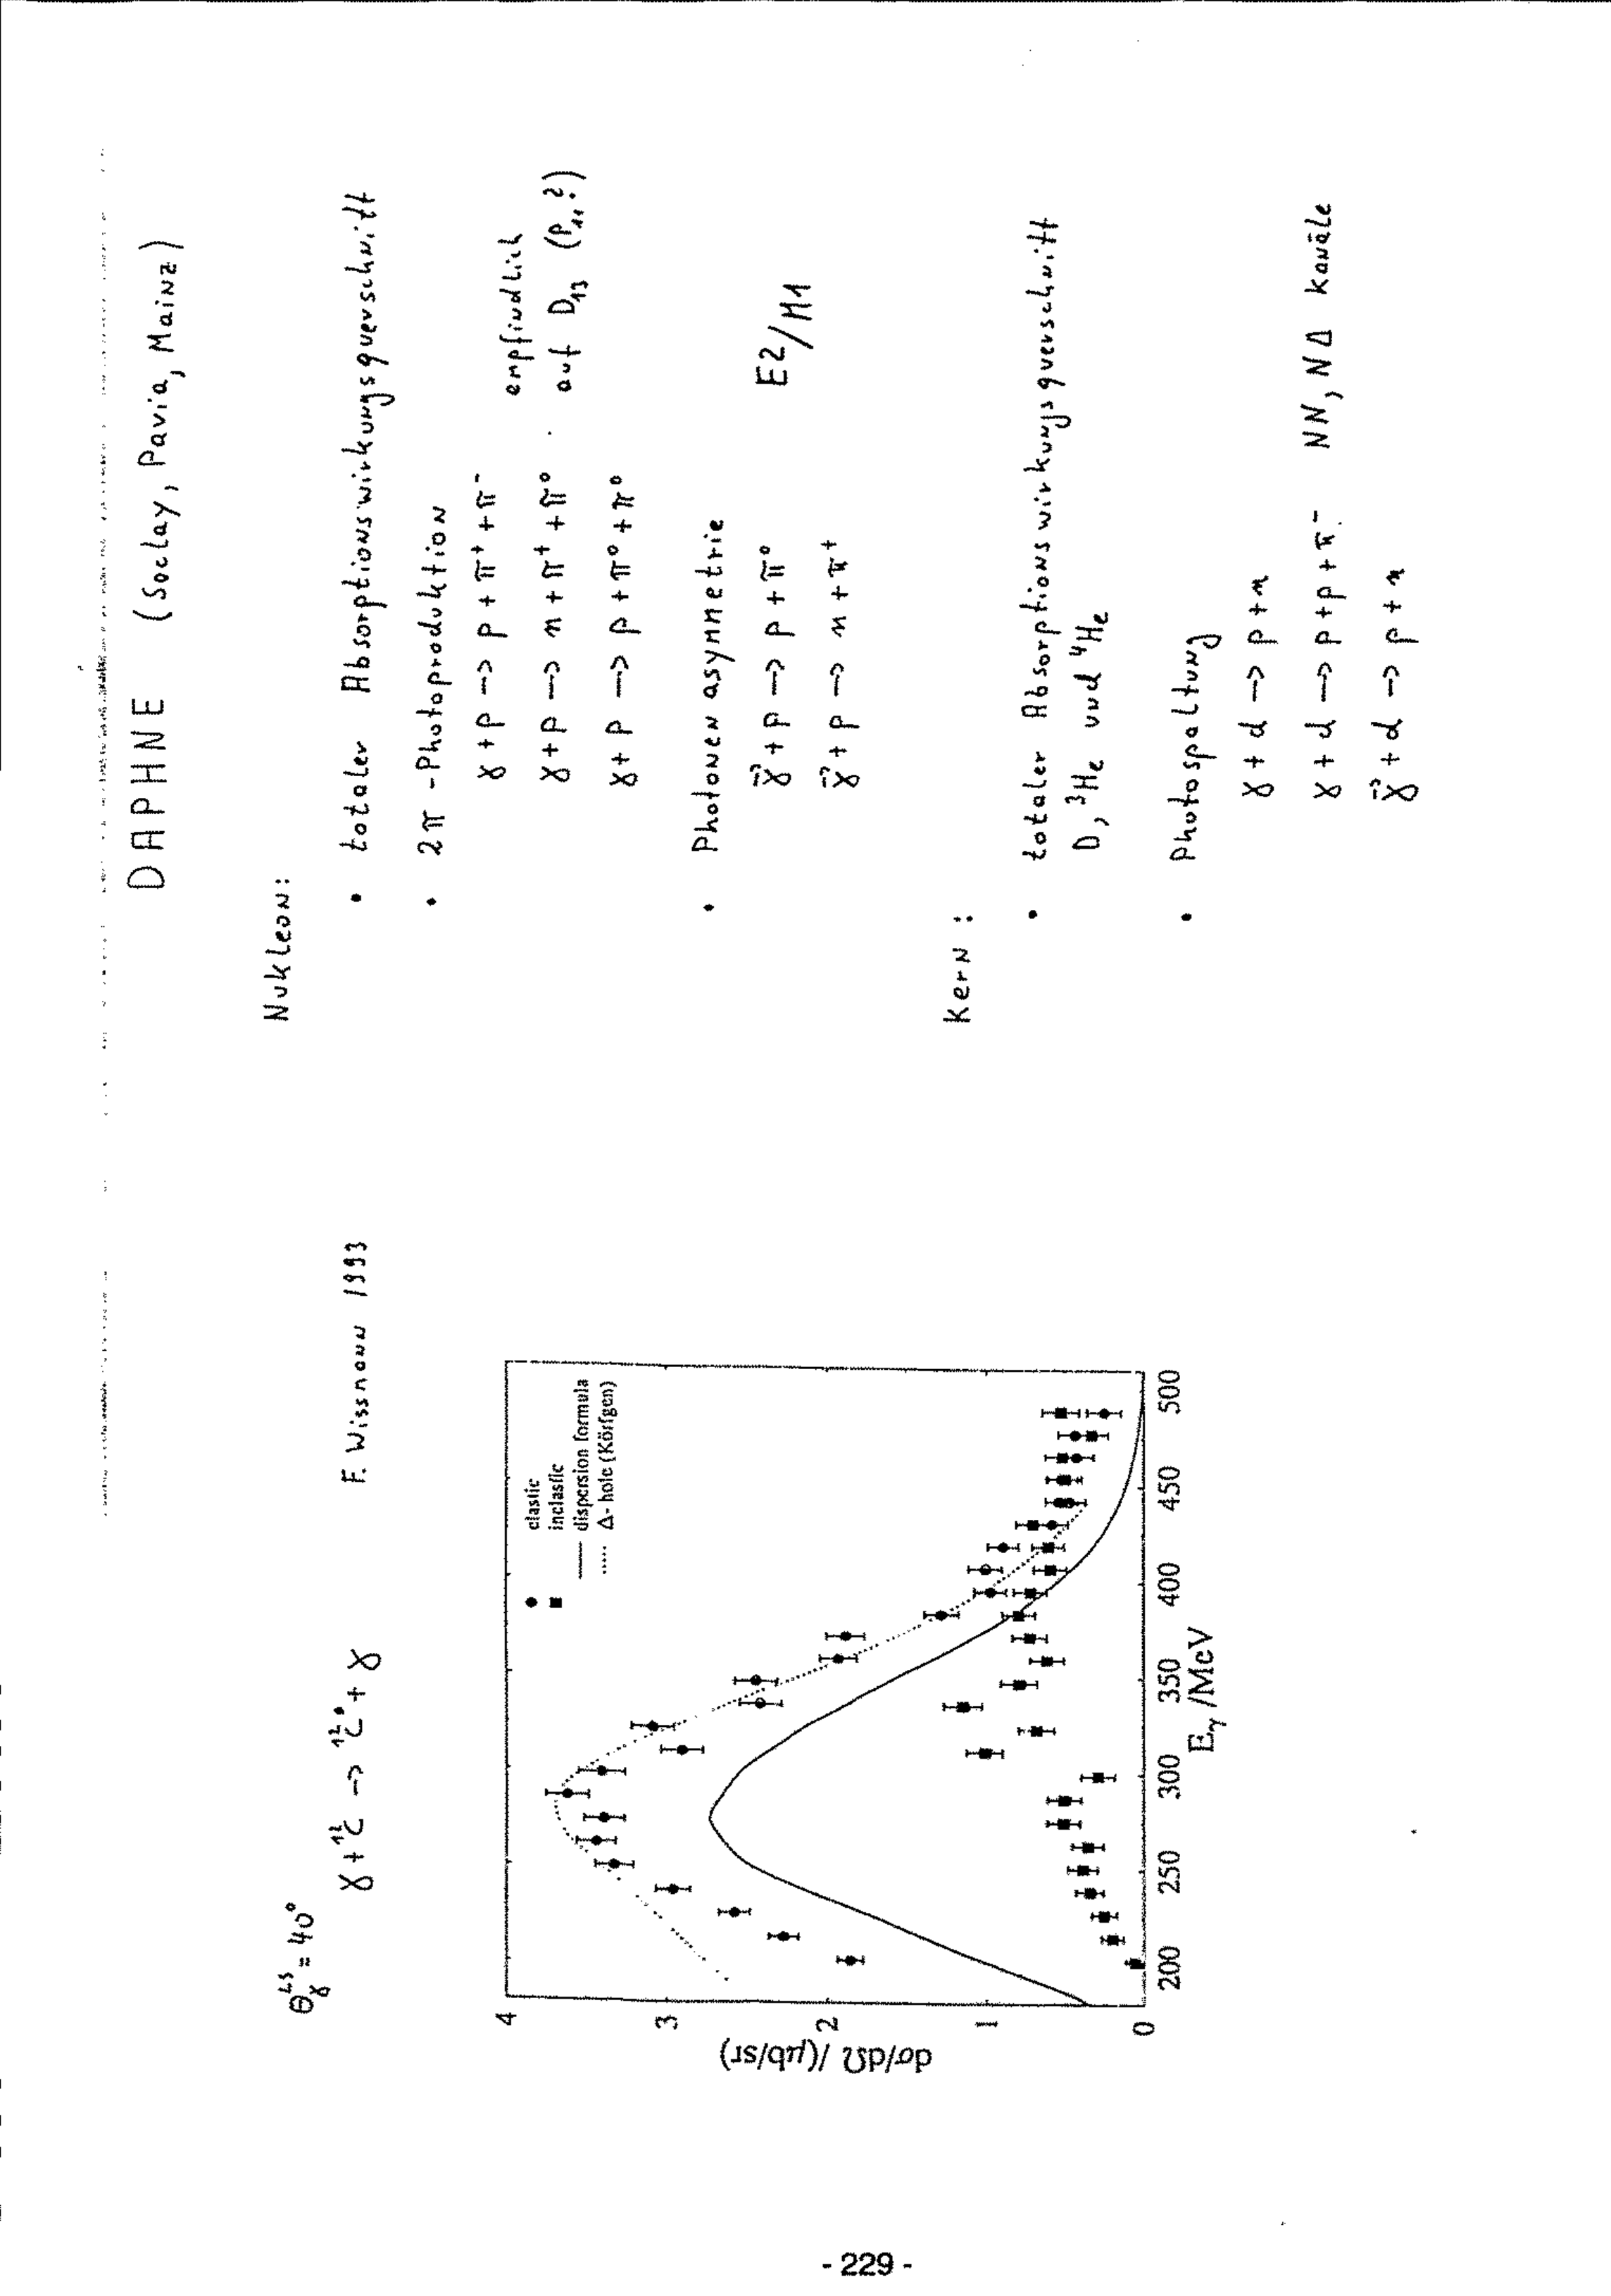 Θγ^LS = 40°
γ + ¹²C → ¹²C* + γ
F. Wissmann 1993
elastic
inelastic
dispersion formula
Δ- hole (Körfgen)
dσ/dΩ /(μb/sr)
4
3
2
1
0
200 250 300 350 400 450 500
Eγ /MeV
DAPHNE (Saclay, Pavia, Mainz)
Nukleon:
• totaler Absorptionswirkungsquerschnitt
• 2π -Photoproduktion
γ + p → p + π⁺ + π⁻ empfindlich
γ + p → n + π⁺ + π⁰ auf D₁₃ (P₁₁?)
γ + p → p + π⁰ + π⁰
• Photonenasymmetrie
γ⃗ + p → p + π⁰ E2/M1
γ⃗ + p → n + π⁺
Kern:
• totaler Absorptionswirkungsquerschnitt
D, ³He und ⁴He
• Photospaltung
γ + d → p + n
γ + d → p + p + π⁻ NN, NΔ kanäle
γ⃗ + d → p + n
- 229 -